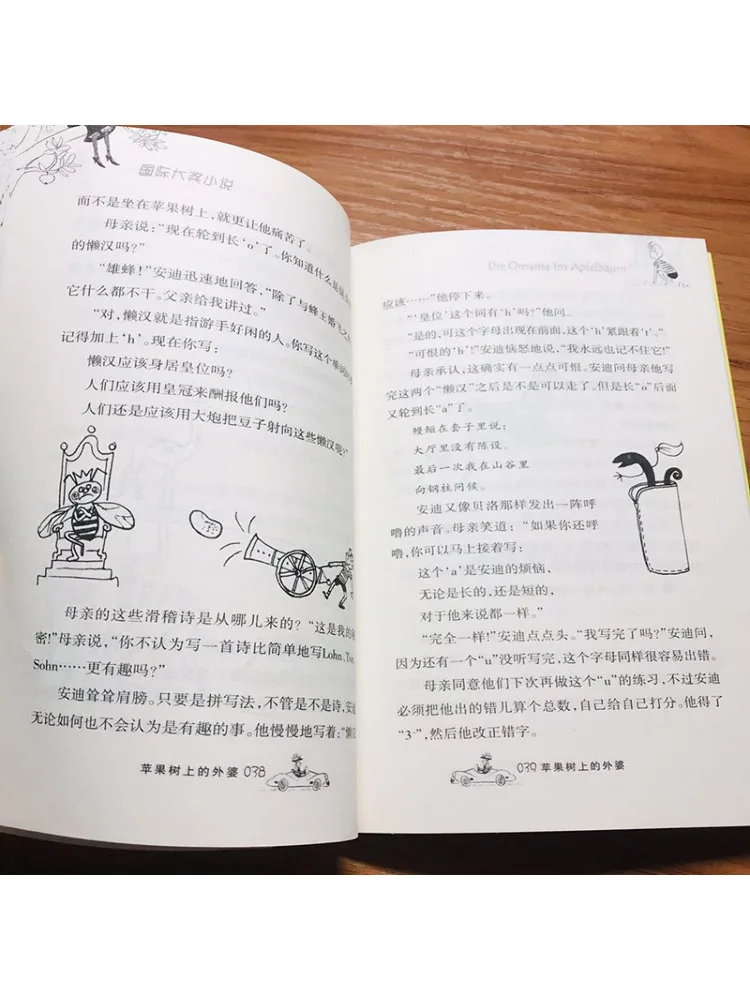 国际大奖小说
而不是坐在苹果树上，就更让他痛苦了。
母亲说：“现在轮到长‘o’了。你知道什么是
的懒汉吗？”
“雄蜂！”安迪迅速地回答，“除了与蜂王婚飞之
它什么都不干。父亲给我讲过。”
“对，懒汉就是指游手好闲的人。你写这个单词时
记得加上‘h’。现在你写：
懒汉应该身居皇位吗？
人们应该用皇冠来酬报他们吗？
人们还是应该用大炮把豆子射向这些懒汉呢？”
母亲的这些滑稽诗是从哪儿来的？“这是我的
密！”母亲说，“你不认为写一首诗比简单地写Lohn，
Sohn……更有趣吗？”
安迪耸耸肩膀。只要是拼写法，不管是不是诗，安
无论如何也不会认为是有趣的事。他慢慢地写着：“懒
苹果树上的外婆 038
Die Omama im Apfelbaum
应该……”他停下来。
“‘皇位’这个词有‘h’吗？”他问。
“是的，可这个字母出现在前面，这个‘h’紧跟着‘t’。”
“可恨的‘h’！”安迪恼怒地说，“我永远也记不住它！”
母亲承认，这确实有一点点可恨。安迪问母亲他写
完这两个“懒汉”之后是不是可以走了。但是长“o”后面
又轮到长“a”了。
鳗鲡在套子里说：
大厅里没有陈设。
最后一次我在山谷里
向钢柱问候。
安迪又像贝洛那样发出一阵呼
噜的声音。母亲笑道：“如果你还呼
噜，你可以马上接着写：
这个‘a’是安迪的烦恼，
无论是长的，还是短的，
对于他来说都一样。”
“完全一样！”安迪点点头。“我写完了吗？”安迪问，
因为还有一个“u”没听写完，这个字母同样很容易出错。
母亲同意他们下次再做这个“u”的练习，不过安迪
必须把他出的错儿算个总数，自己给自己打分。他得了
“3-”，然后他改正错字。
039 苹果树上的外婆